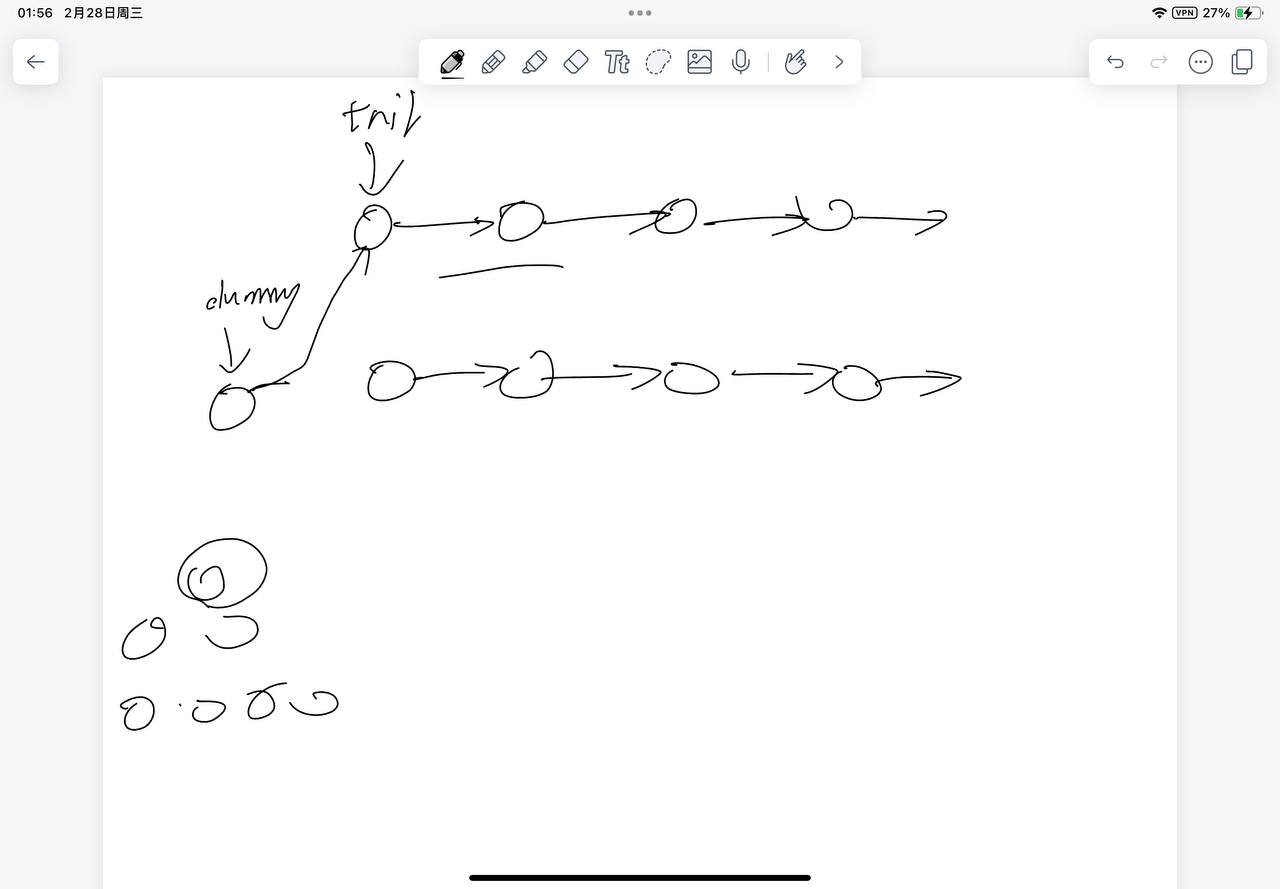 01:56 2月28日周三
VPN 27%
Tt
tail
dummy